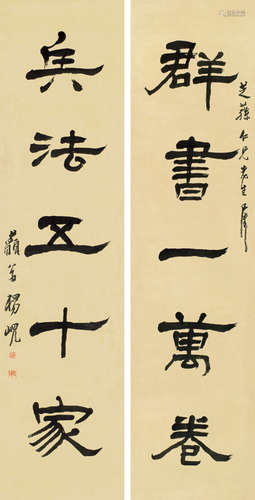 芝蓀仁兄先生
群書一萬卷
兵法五十家
藐翁楊峴